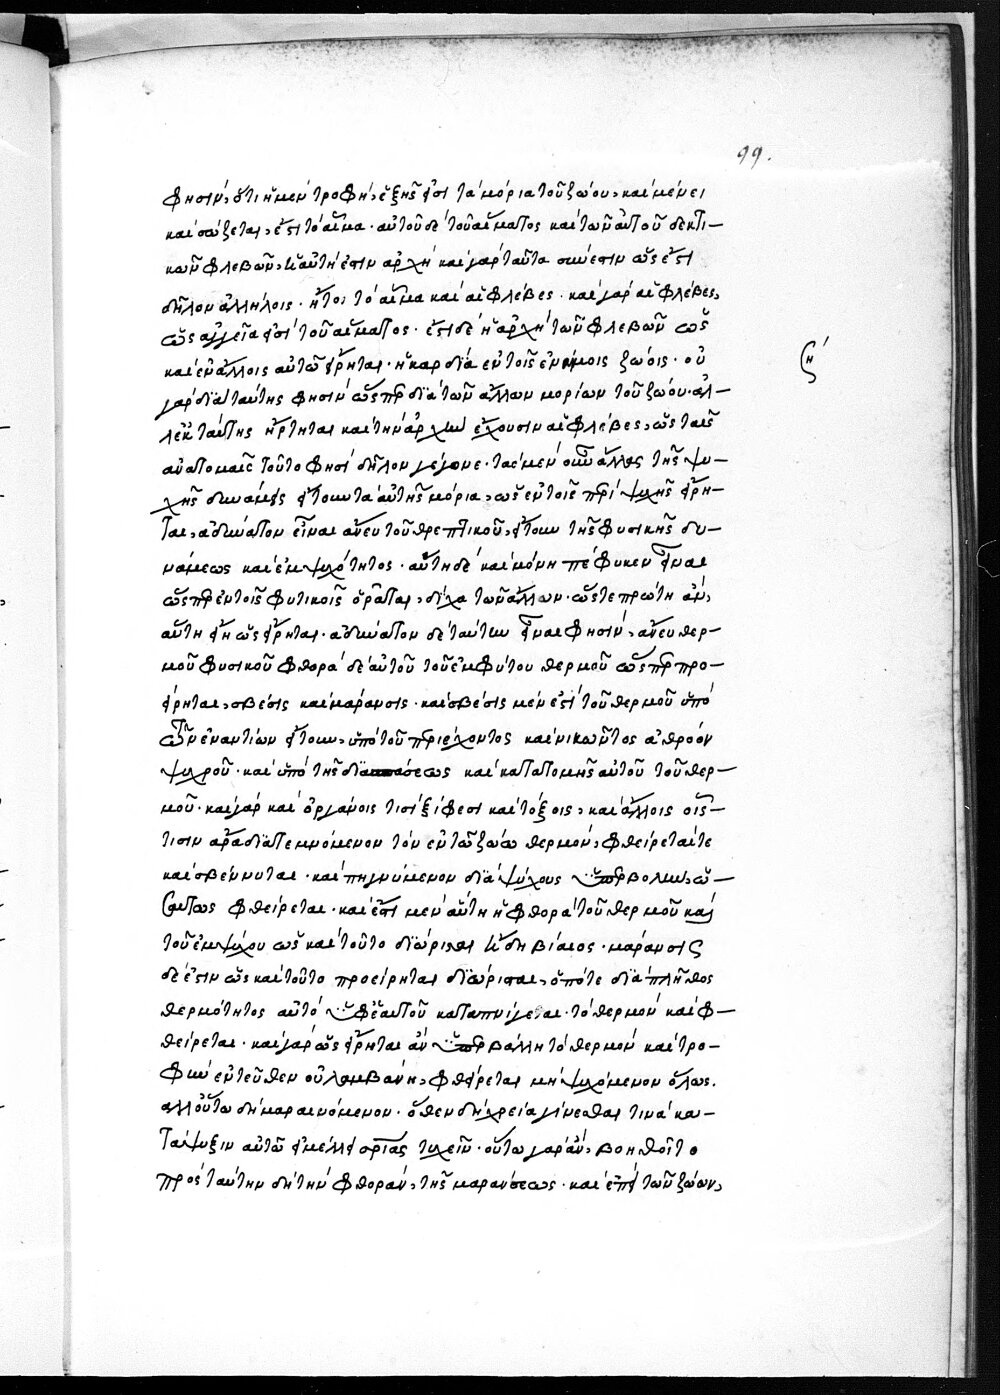 99.
φησὶν, ὅτι ἡ μὲν τροφὴ, ἐξ ἧς εἰσὶ τὰ μόρια τοῦ ζώου, καὶ μένει
καὶ σώζεται, ἐστὶ τὸ αἷμα· αὐτοῦ δὲ τοῦ αἵματος καὶ τῶν αὐτοῦ δεκτι-
κῶν φλεβῶν, ἡ αὐτή ἐστιν ἀρχὴ καὶ γὰρ ταῦτα σύνεστιν ὡς ἔστι
δῆλον ἀλλήλοις· ἤτοι τὸ αἷμα καὶ αἱ φλέβες· καὶ γὰρ αἱ φλέβες,
ὡς ἀγγεῖα εἰσὶ τοῦ αἵματος· ἔστι δὲ ἡ ἀρχὴ τῶν φλεβῶν ὡς
καὶ ἐν ἄλλοις αὐτῶ εἴρηται· ἡ καρδία ἐν τοῖς ἐναίμοις ζώοις· οὐ
ζη´
γὰρ διὰ ταύτης φησὶν ὥσπερ διὰ τῶν ἄλλων μορίων τοῦ ζώου· ἀλ-
λ' ἐκ ταύτης ἤρτηται καὶ τὴν ἀρχὴν ἔχουσιν αἱ φλέβες, ὡς ταῖς
ἀνατομαῖς τοῦτο φησὶ δῆλον γέγονε· τὰς μὲν οὖν ἄλλας τῆς ψυ-
χῆς δυνάμεις ἤτοι τὰ αὐτῆς μόρια, ὡς ἐν τοῖς περὶ ψυχῆς εἴρη-
ται, ἀδύνατον εἶναι ἄνευ τοῦ θρεπτικοῦ, ἤτοι τῆς φυσικῆς δυ-
νάμεως καὶ ἐμψυχότητος· αὕτη δὲ καὶ μόνη πέφυκεν εἶναι
ὥσπερ ἐν τοῖς φυτικοῖς ὁρᾶται, δίχα τῶν ἄλλων· ὥστε πρώτη ἂν,
αὕτη εἴη ὡς εἴρηται· ἀδύνατον δὲ ταύτην εἶναι φησὶν, ἄνευ θερ-
μοῦ φυσικοῦ φθορὰ δὲ αὐτοῦ τοῦ ἐμφύτου θερμοῦ ὥσπερ προ-
είρηται, σβέσις καὶ μάρανσις· καὶ σβέσις μὲν ἐστὶ τοῦ θερμοῦ ὑπὸ
τῶν ἐναντίων ἤτοι, ὑπὸ τοῦ περιέχοντος καὶ νικῶντος ἀθρόον
ψυχροῦ· καὶ ὑπὸ τῆς διασπάσεως καὶ κατατομῆς αὐτοῦ τοῦ θερ-
μοῦ· καὶ γὰρ καὶ ὀργάνοις τισὶ ξίφεσι καὶ τόξοις, καὶ ἄλλοις οἷς-
τισιν ἄρα διατεμνόμενον τὸν ἐν τῶ ζώω θερμὸν, φθείρεταί τε
καὶ σβέννυται· καὶ πηγνύμενον διὰ ψύχους ὑπερβολὴν, ὡ-
σαύτως φθείρεται· καὶ ἔστι μὲν αὕτη ἡ φθορὰ τοῦ θερμοῦ καὶ
τοῦ ἐμψύχου ὡς καὶ τοῦτο διώρισται ἤδη βίαιος· μάρανσις
δέ ἐστιν ὡς καὶ τοῦτο προείρηται διώρισται, ὁπότε διὰ πλῆθος
θερμότητος αὐτὸ ὑφ' ἑαυτοῦ καταπνίγεται· τὸ θερμὸν καὶ φ-
θείρεται· καὶ γὰρ ὡς εἴρηται ἂν ὑπερβάλλη τὸ θερμὸν καὶ τρο-
φὴν ἐντεῦθεν οὐ λαμβάνη, φθείρεται μὴ ψυχόμενον ὅλως.
ἀλλ' οὕτω δὴ μαραινόμενον· ὅθεν δὴ χρεία γίνεσθαι τινὰ κα-
τάψυξιν αὐτῶ εἰ μέλλει σωτηρίας τυχεῖν· οὕτω γὰρ ἂν, βοηθοῖτο
πρὸς ταύτην δὴ τὴν φθορὰν, τῆς μαράνσεως· καὶ ἐπὶ τῶν ζώων,